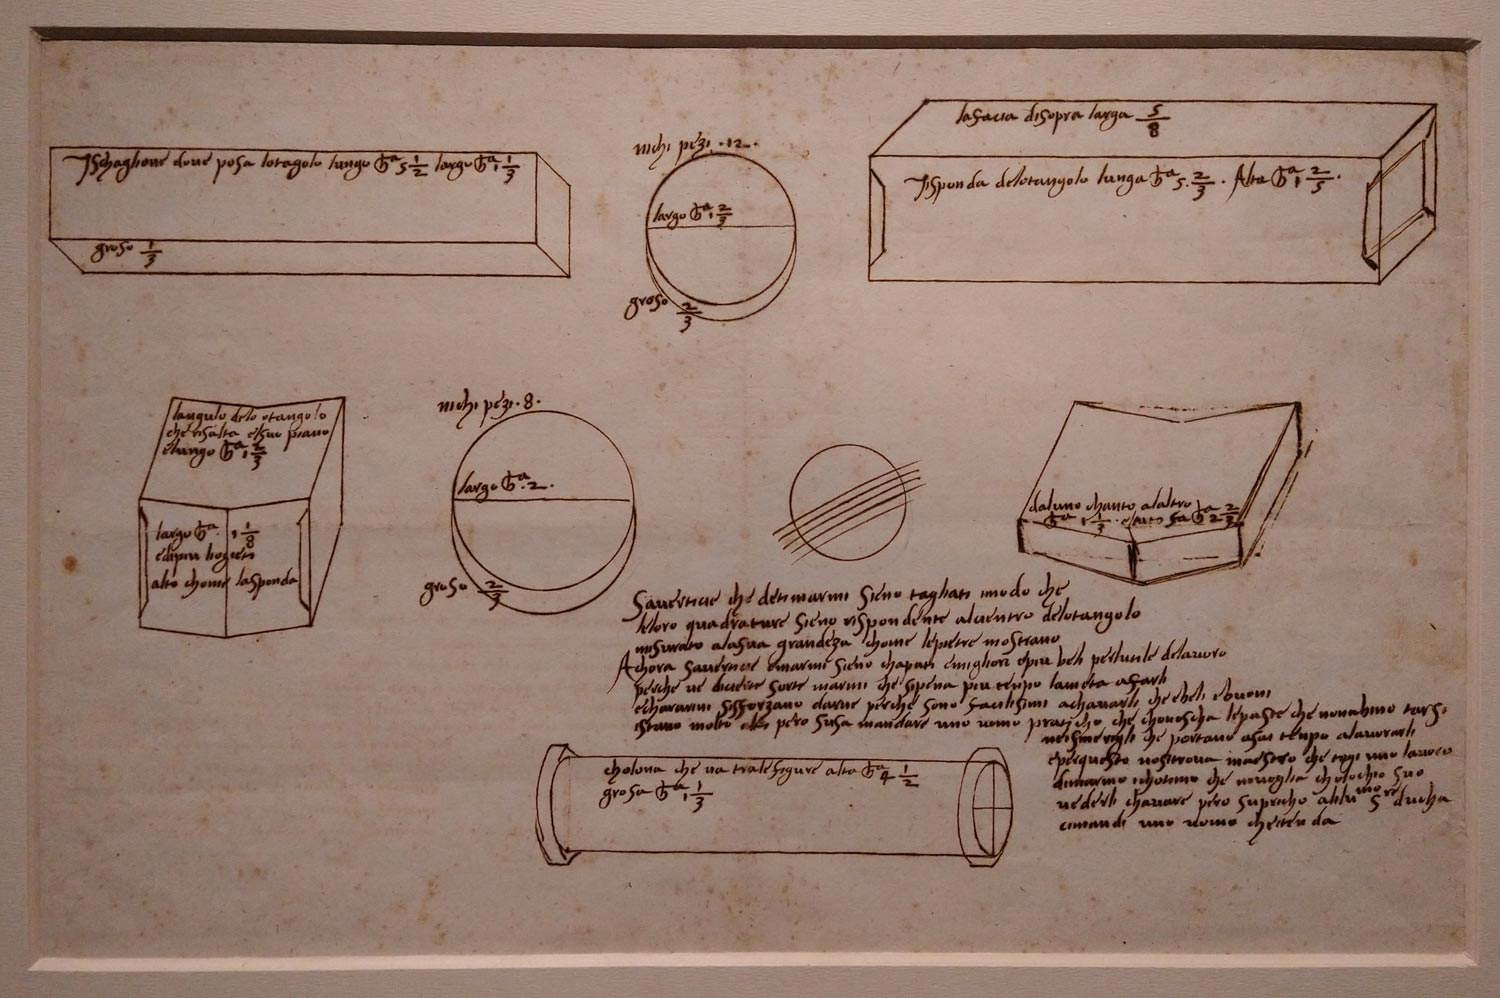 Ischaglione doue posa lotagolo lungo ba 5 1/2 largo ba 1 1/3
groso 1/3
nichi pezi · 12 ·
largo ba 1 2/3
groso 2/3
lafacia disopra larga 5/8
risponda delotangolo lunga ba 5 · 2/3 · Alta ba 1 2/5 ·
langulo delo otangolo
che risalta elsuo piano
elungo ba 1 2/3
largo ba · 1 1/8
edipiu
alto chome lasponda
nichi pezi · 8 ·
largo ba · 2 ·
groso 2/3
daluno chanto alaltro
ba 1 1/3 · ba 2 2/3
Sauertite che detimarmi sieno tagliati imodo che
leloro quadrature sieno rispondente alcientro delotangolo
misurato alasua grandeza chome lepietre mostrano
Achora sauertite emarmi sieno chapati emigliori epiu beli perlutile delauoro
perche ue diuerse sorte marmi che sipena piu tenpo lameta afarli
echararini sisforzano darne perche sono facilisimi achauarli che beli ebuoni
istano molto pero susa mandare uno uomo praticho che chonoscha lepaste che nonabino tarsi
neismerigli che portano asai tenpo alauorarli
eperquesto nositroua maestro che togi uno lauoro
dimarmo che nonoglia cholochio suo
uederli chauare pero suplicho alilumo Sre ducha
cimandi uno uomo
cholona che ua trale figure alta ba 4 1/2
grosa ba 1 1/3